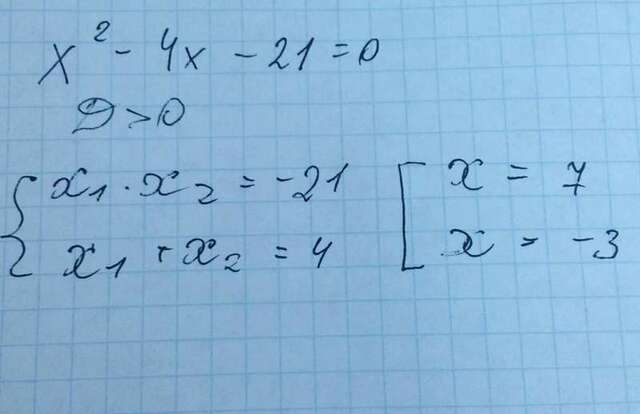 x² - 4x - 21 = 0
D > 0
{ x₁ · x₂ = -21 [ x = 7
x₁ + x₂ = 4 x = -3